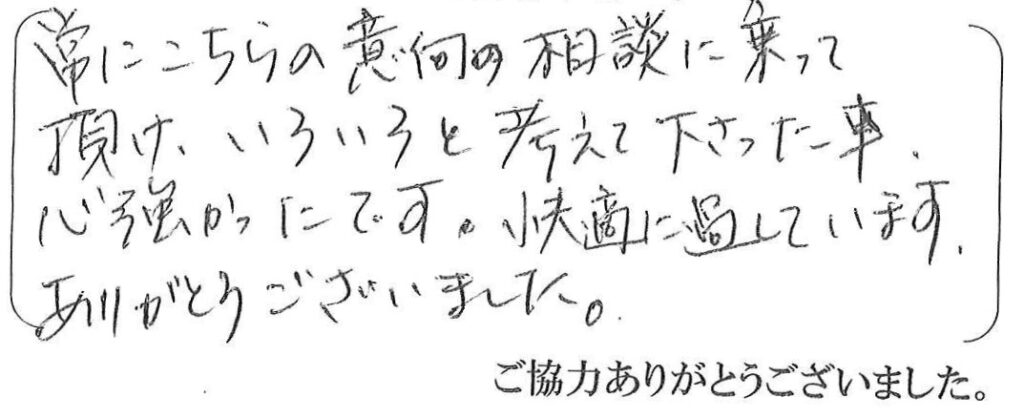 常にこちらの意向の相談に乗って
頂け、いろいろと考えて下さった事、
心強かったです。快適に過しています。
ありがとうございました。
ご協力ありがとうございました。